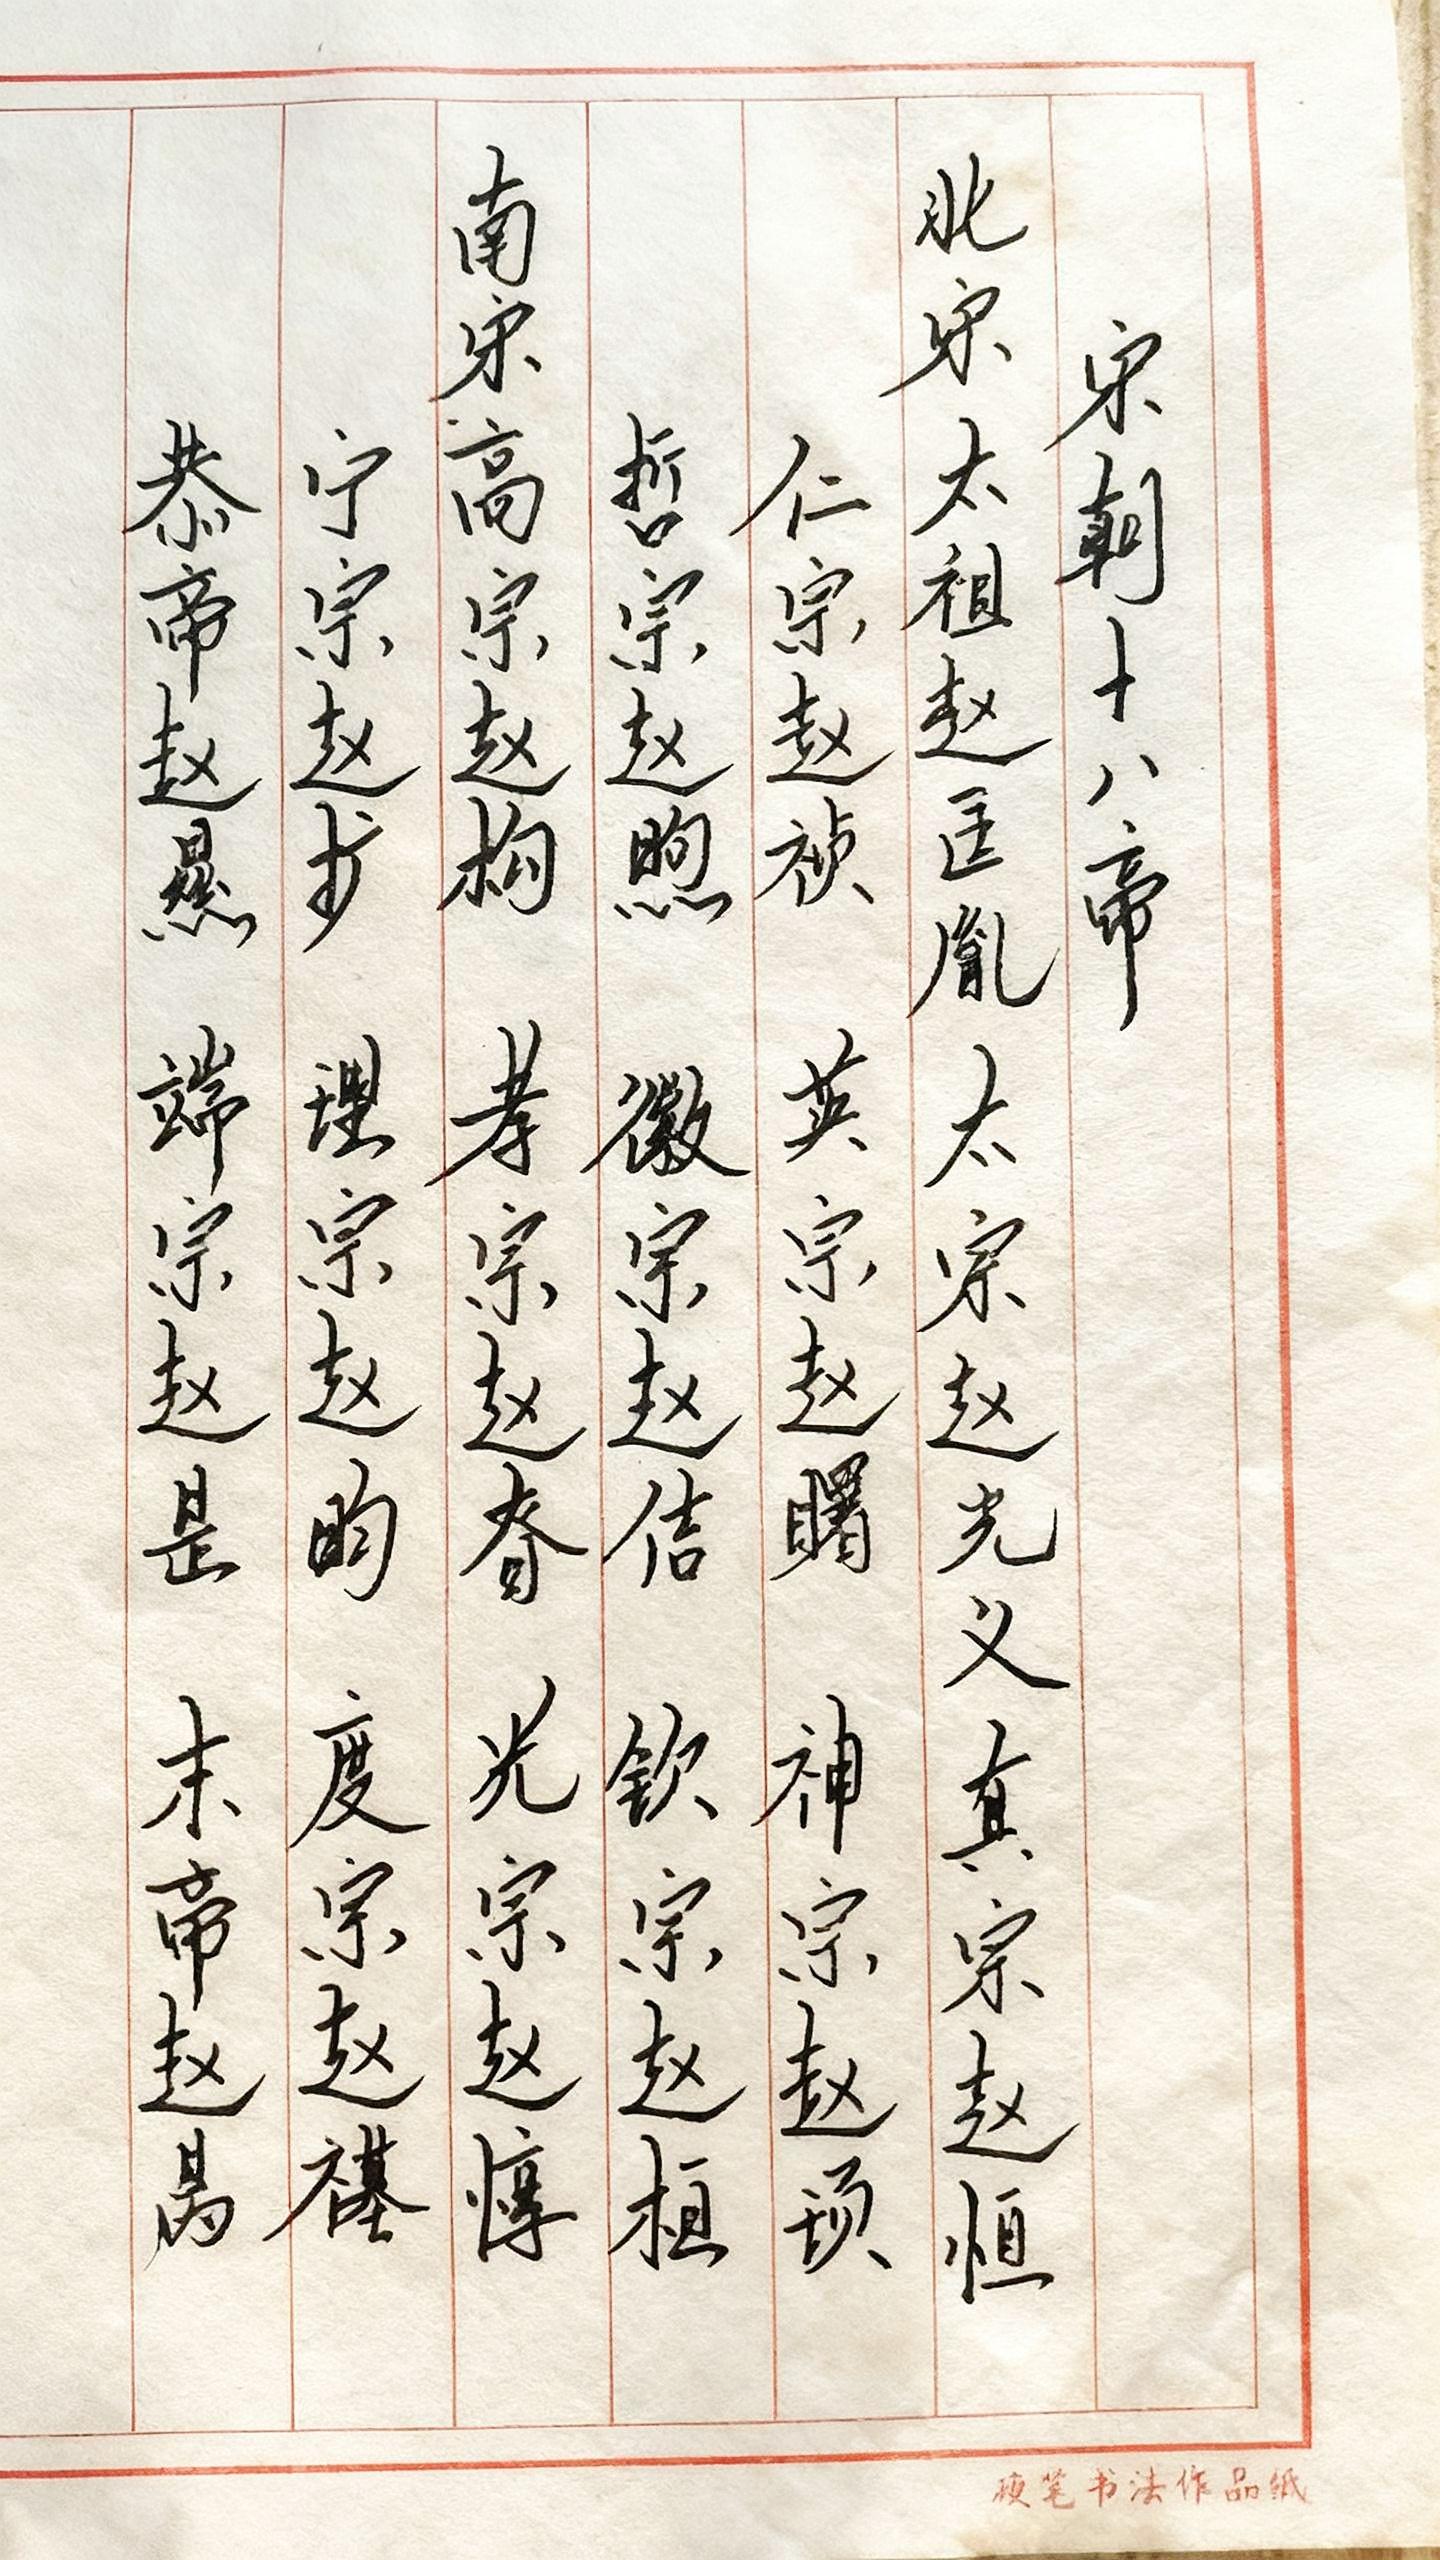 宋朝十八帝
北宋太祖赵匡胤 太宗赵光义 真宗赵恒
仁宗赵祯 英宗赵曙 神宗赵顼
哲宗赵煦 徽宗赵佶 钦宗赵桓
南宋高宗赵构 孝宗赵眘 光宗赵惇
宁宗赵扩 理宗赵昀 度宗赵禥
恭帝赵㬎 端宗赵昰 末帝赵昺
硬笔书法作品纸